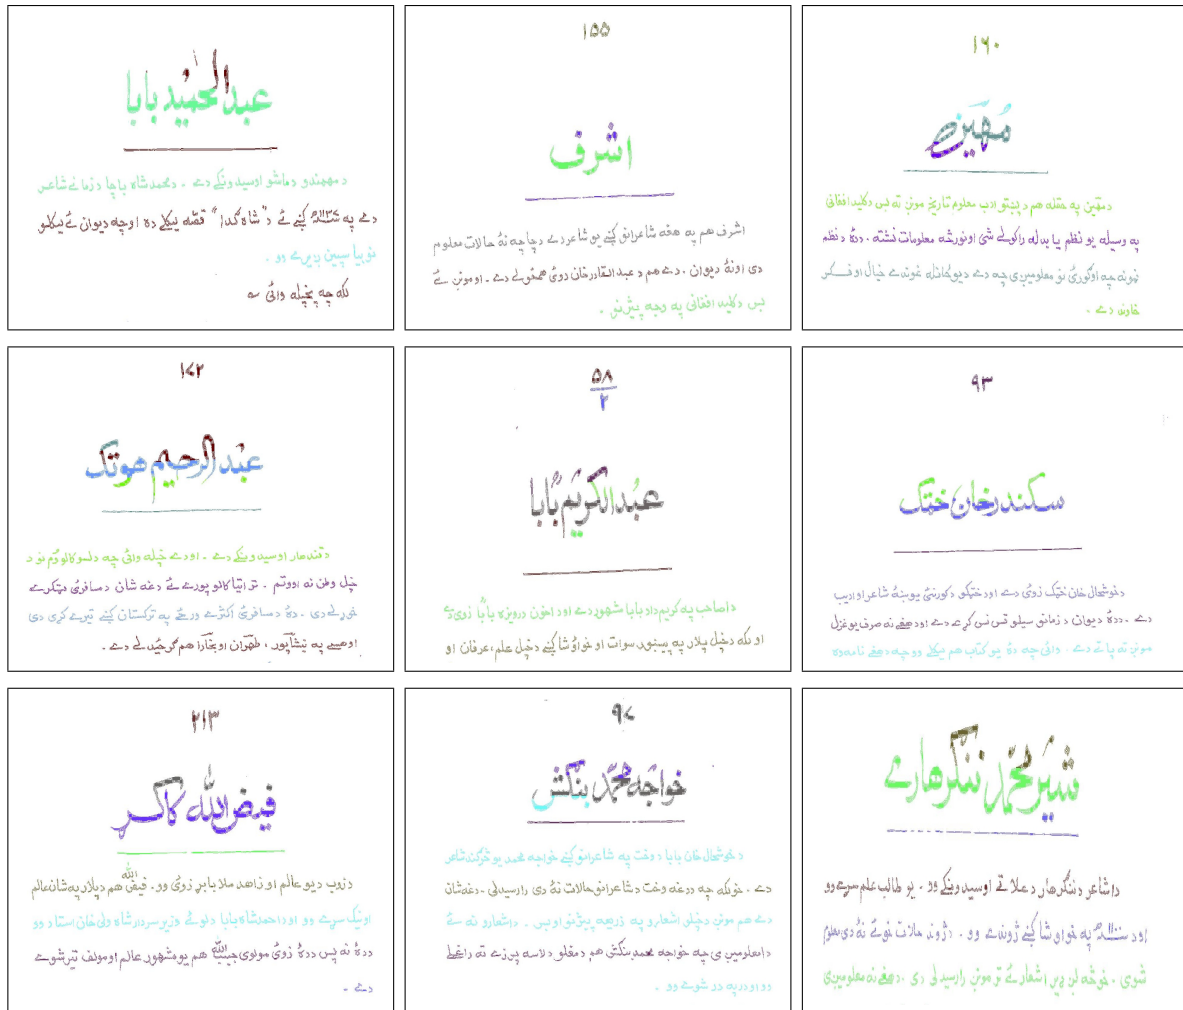 عبدالحمید بابا
د مهمندو د ماشو اوسیدونکے دے ۔ د محمد شاہ باچا د زمانے شاعر
دے په کښے ئے د "شاہ گدا" قصه لیکلے دہ او چه دیوان ئے لیکلو
نو بیا سپین ږیرے وو ۔
لکه چه پخپله وائی ؎
۱۵۵
اشرف
اشرف هم په هغه شاعرانو کښے یو شاعر دے د چا چه نهٔ حالات معلوم
دی او نهٔ دیوان ۔ دے هم د عبدالقادر خان دوئ همځولے دے ۔ او مونږ ئے
بس د کلید افغانی په وجه پیژنو ۔
۱۶۰
مهین
د مهین په حقله هم د پښتو ادب معلوم تاریخ مونږ ته بس د کلید افغانی
په وسیله یو نظم یا بدله راکولے شی او نور څه معلومات نشته ۔ د دهٔ د نظم
نمونه چه اوګورئ نو معلومیږی چه دے د یو ځانله غوندے خیال او فکر
خاوند دے ۔
۱۷۲
عبدالرحیم هوتک
د قندهار اوسیدونکے دے ۔ او دے خپله وائی چه د لسو کالو وم نو د
خپل وطن نه اووتم ۔ تر اتیا کالو پورے ئے دغه شان د مسافرئ
دی ۔ د دهٔ د مسافرئ اکثرے ورځے په ترکستان کښے تیرے کړی دی
او هسے په نیشاپور، طهران او بخارا هم ګرځیدلے دے ۔
۵۸
۲
عبدالکریم بابا
دا صاحب په کریم داد بابا شهور دے او د اخون درویزہ بابا زوی دے
او لکه د خپل پلار په پیښور، سوات او خواؤ شا کښے د خپل علم، عرفان او
۹۳
سکندر خان خټک
د خوشحال خان خټک زوئ دے او د خټکو د کورنئ یو ښهٔ شاعر او ادیب
دے ۔ د دهٔ دیوان د زمانو سیلو تس نس کړے دے او د هغے نه صرف یو غزل
مونږ ته پاتے دے ۔ وائی چه دهٔ یو کتاب هم لیکلے وو چه د هغے نامه دہ
۲۱۳
فیض الله کاکړ
د ژوب د یو عالم او زاهد ملا بابر زوئ وو ۔ فیض الله هم د پلار په شان عالم
او نیک سړے وو او د احمد شاہ بابا د لوئے وزیر سردار شاہ ولی خان استاد وو
د دهٔ نه پس د دهٔ زوئ مولوی حبیب الله هم یو مشهور عالم او مولف تیر شوے
دے ۔
۹۷
خواجه محمد بنګش
د خوشحال خان بابا د وخت په شاعرانو کښے خواجه محمد یو څرګند شاعر
دے ۔ خو لکه چه د دغه وخت د شاعرانو حالات نهٔ دی رارسیدلی ۔ دغه شان
دے هم مونږ د خپلو اشعارو په ذریعه پیژنو او بس ۔ د اشعارو نه ئے
دا معلومیږی چه خواجه محمد بنګش هم د مغلو د لاسه په زړه داغلے
وو او در په در شوے وو ۔
شیر محمد ننګرهارے
دا شاعر د ننګرهار د علاقے اوسیدونکے وو ۔ یو طالب علم سړے وو
او د په خواؤ شا کښے ژوندے وو ۔ د ژوند حالات ئے نهٔ دی معلوم
شوی ۔ خو څه لږ ډیر اشعار ئے تر مونږ رارسیدلی دی ۔ د هغے نه معلومیږی